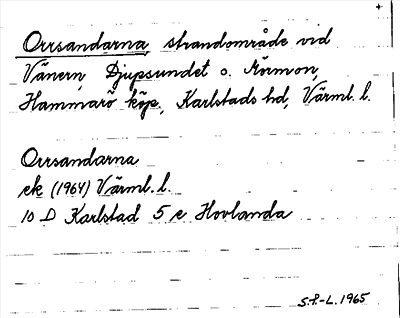 +
Orrsandarna, strandområde vid
Vänern, Djupsundet o. Mörmon,
Hammarö köp., Karlstads hd, Värml. l.
Orrsandarna
ek (1964) Värml. l.
10 D Karlstad 5 e Hovlanda
S.F.-L. 1965